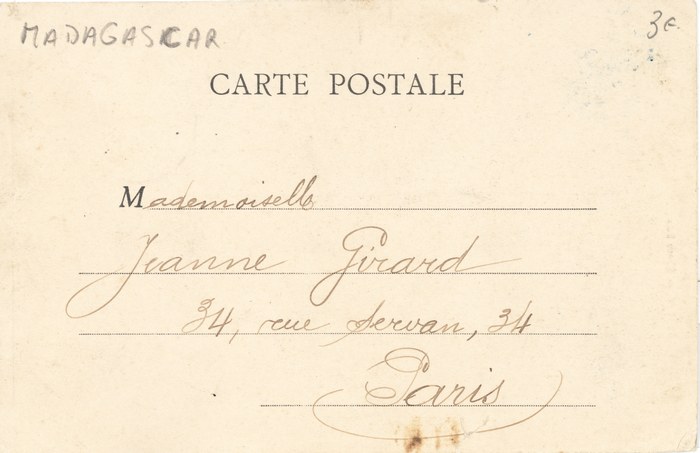 MADAGASCAR
3€
CARTE POSTALE
Mademoiselle
Jeanne Girard
34, rue Servan, 34
Paris